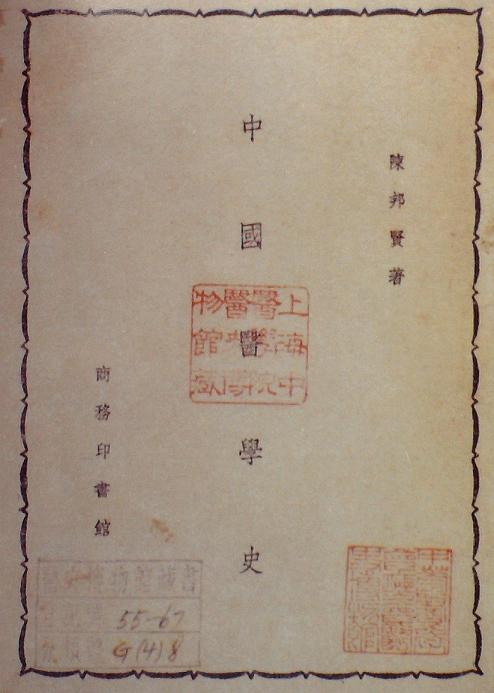 陳邦賢著
中國醫學史
商務印書館
上海中
醫學院
醫史博
物館藏
醫史博物館藏書
55-67
G(4)8